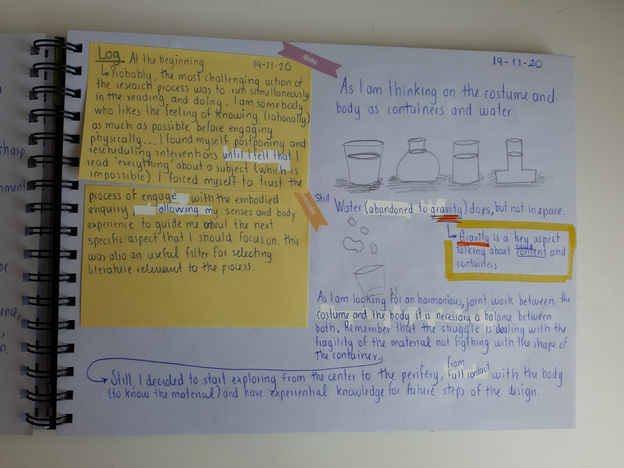 Log At the beginning
19-11-20
↳ Probably, the most challenging action of
the research process was to run simultaneously
in the reading and doing. I am somebody
who likes the feeling of knowing (rationally)
as much as possible before engaging
physically... I found myself postponing and
rescheduling interventions until I tell that I
read "everything" about a subject (which is
impossible). I forced myself to trust the
process of engage with the embodied
enquiry allowing my senses and body
experience to guide me about the next
specific aspect that I should focus on. this
was also an useful filter for selecting
literature relevant to the process.
19-11-20
As I am thinking on the costume and
body as containers and water.
Still
Water (abandoned to gravity) does, but not in space.
↳ Gravity is a key aspect
talking about liquid content and
containers
As I am looking for an harmonious, joint work between the
costume and the body it is necessary a balance between
both. Remember that the struggle is dealing with the
fragility of the material not figthing with the shape of
the container.
Still, I decided to start exploring from the center to the perifery, from full contact with the body
(to know the material) and have experiential knowledge for future steps of the design.